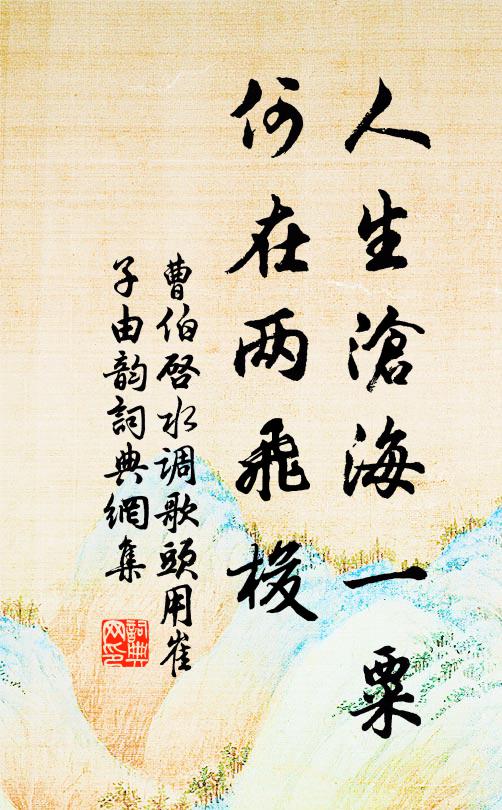 人生滄海一粟
何在两飛梭
曹伯啓水调歌頭用崔
子由韵詞典網集
詞典
网印